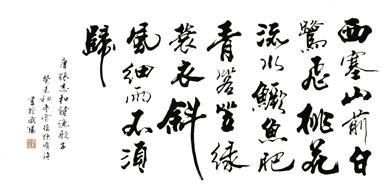 西塞山前白
鷺飛桃花
流水鱖魚肥
青箬笠綠
蓑衣斜
風細雨不須
歸
唐張志和詩漁歌子
癸未初冬
書於咸陽